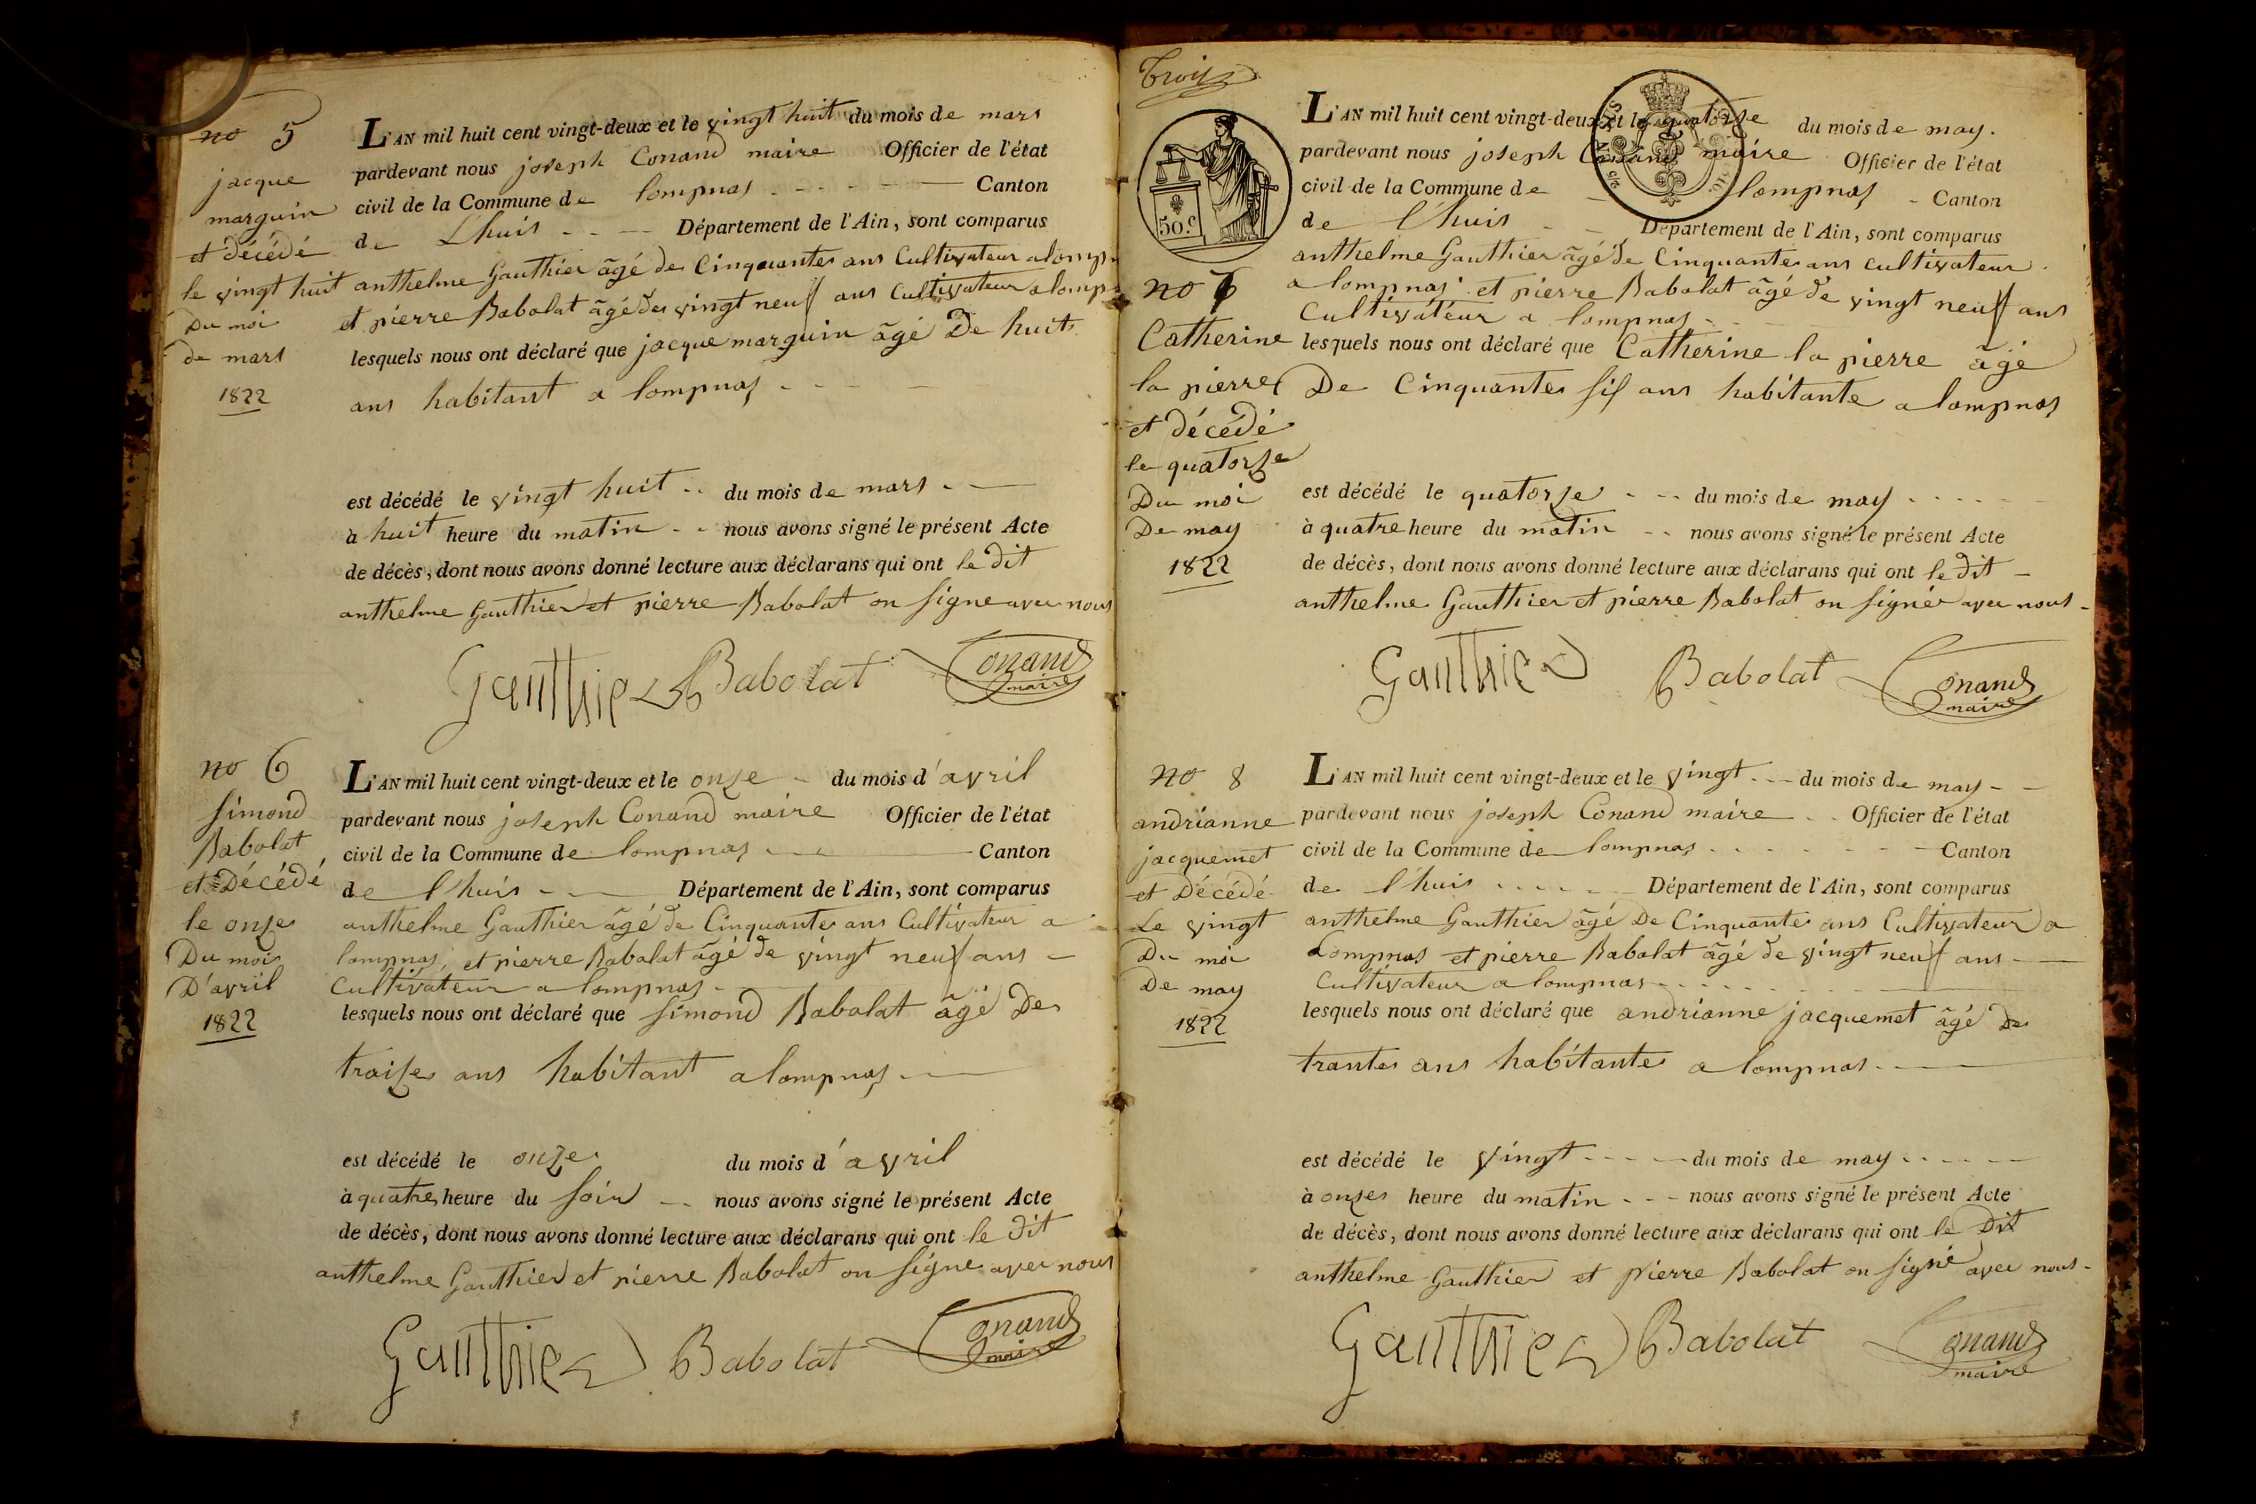 no 5
jacque
marguin
et décédé
le vingt huit
Du moi
de mars
1822
L'AN mil huit cent vingt-deux et le vingt huit du mois de mars
pardevant nous joseph Conand maire Officier de l'état
civil de la Commune de lompnas Canton
de Lhuis Département de l'Ain, sont comparus
anthelme Gauthier âgé de Cinquante ans Cultivateur a lomp.
et pierre Babolat âgé de vingt neuf ans Cultivateur a lomp
lesquels nous ont déclaré que jacque marguin âgé De huit
ans habitant a lompnas
est décédé le vingt huit du mois de mars
à huit heure du matin nous avons signé le présent Acte
de décès, dont nous avons donné lecture aux déclarans qui ont le dit
anthelme Gauthier et pierre Babolat on signe avec nous
Gauthier Babolat Conand
maire
no 6
simond
Babolat
et Décédé
le onze
Du mois
D'avril
1822
L'AN mil huit cent vingt-deux et le onze du mois d'avril
pardevant nous joseph Conand maire Officier de l'état
civil de la Commune de lompnas Canton
de l'huis Département de l'Ain, sont comparus
anthelme Gauthier âgé de Cinquante ans Cultivateur a
lompnas, et pierre Babolat âgé de vingt neuf ans
Cultivateur a lompnas
lesquels nous ont déclaré que simond Babolat âgé De
traize ans habitant a lompnas
est décédé le onze du mois d'avril
à quatre heure du soir nous avons signé le présent Acte
de décès, dont nous avons donné lecture aux déclarans qui ont le dit
anthelme Gauthier et pierre Babolat on signe avec nous
Gauthier Babolat Conand
maire
Trois
50 c
no
Catherine
la pierre
et décédé
le quatorze
Du moi
De may
1822
L'AN mil huit cent vingt-deux et le quatorze du mois de may.
pardevant nous joseph Conand maire Officier de l'état
civil de la Commune de lompnas Canton
de l'huis Département de l'Ain, sont comparus
anthelme Gauthier âgé de Cinquante ans cultivateur
a lompnas et pierre Babolat âgé de vingt neuf ans
Cultivateur a lompnas
lesquels nous ont déclaré que Catherine la pierre âgé
De Cinquante sis ans habitante a lompnas
est décédé le quatorze du mois de may
à quatre heure du matin nous avons signé le présent Acte
de décès, dont nous avons donné lecture aux déclarans qui ont le dit
anthelme Gauthier et pierre Babolat on signé avec nous
Gauthier Babolat Conand
maire
no 8
andrianne
jacquemet
et Décédé
Le vingt
Du moi
De may
1822
L'AN mil huit cent vingt-deux et le vingt du mois de may
pardevant nous joseph Conand maire Officier de l'état
civil de la Commune de lompnas Canton
de l'huis Département de l'Ain, sont comparus
anthelme Gauthier âgé De Cinquante ans Cultivateur a
Lompnas et pierre Babolat âgé de vingt neuf ans
Cultivateur a lompnas
lesquels nous ont déclaré que andrianne jacquemet âgé De
trante ans habitante a lompnas
est décédé le vingt du mois de may
à onze heure du matin nous avons signé le présent Acte
de décès, dont nous avons donné lecture aux déclarans qui ont le Dit
anthelme Gauthier et pierre Babolat on signé avec nous
Gauthier Babolat Conand
maire